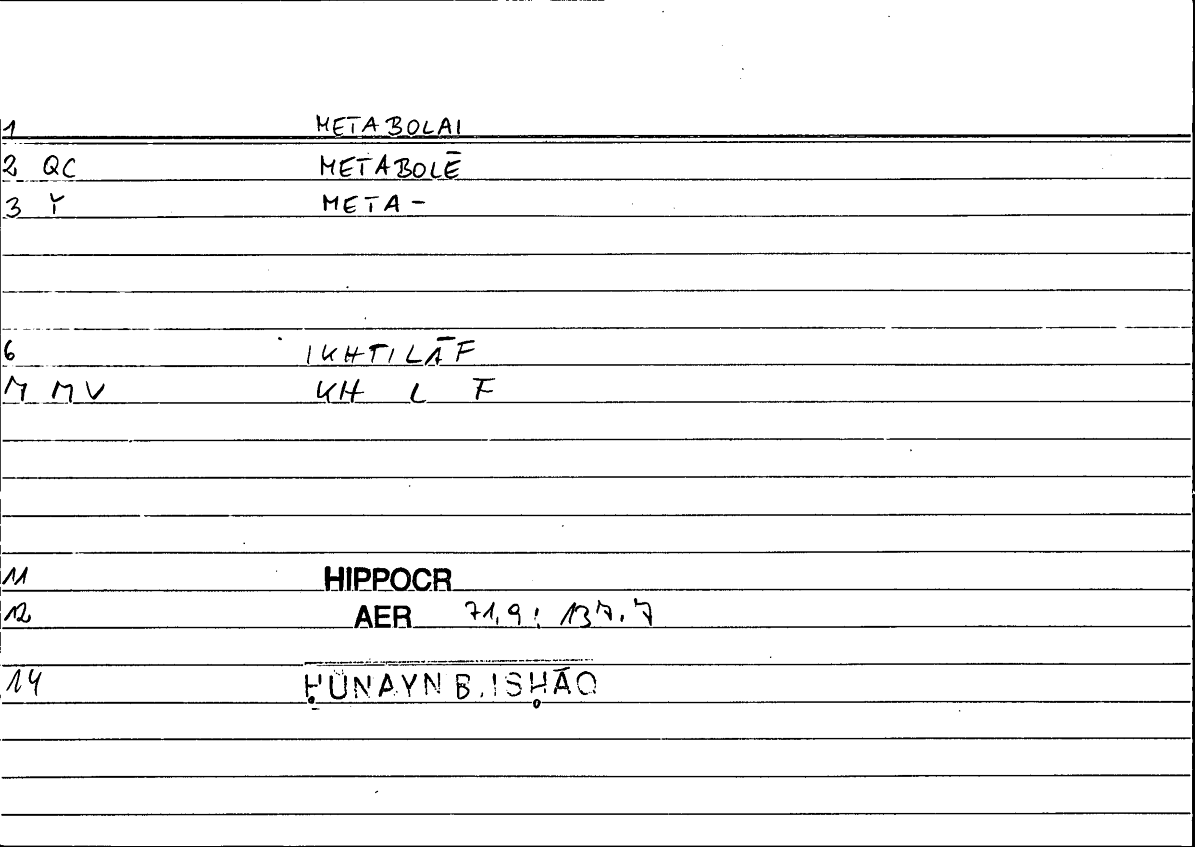 1 METABOLAI
2 QC METABOLĒ
3 Y META-
6 IKHTILĀF
7 MV KH L F
11 HIPPOCR
12 AER 71,9 : 137.7
14 ḤUNAYN B. ISḤĀQ